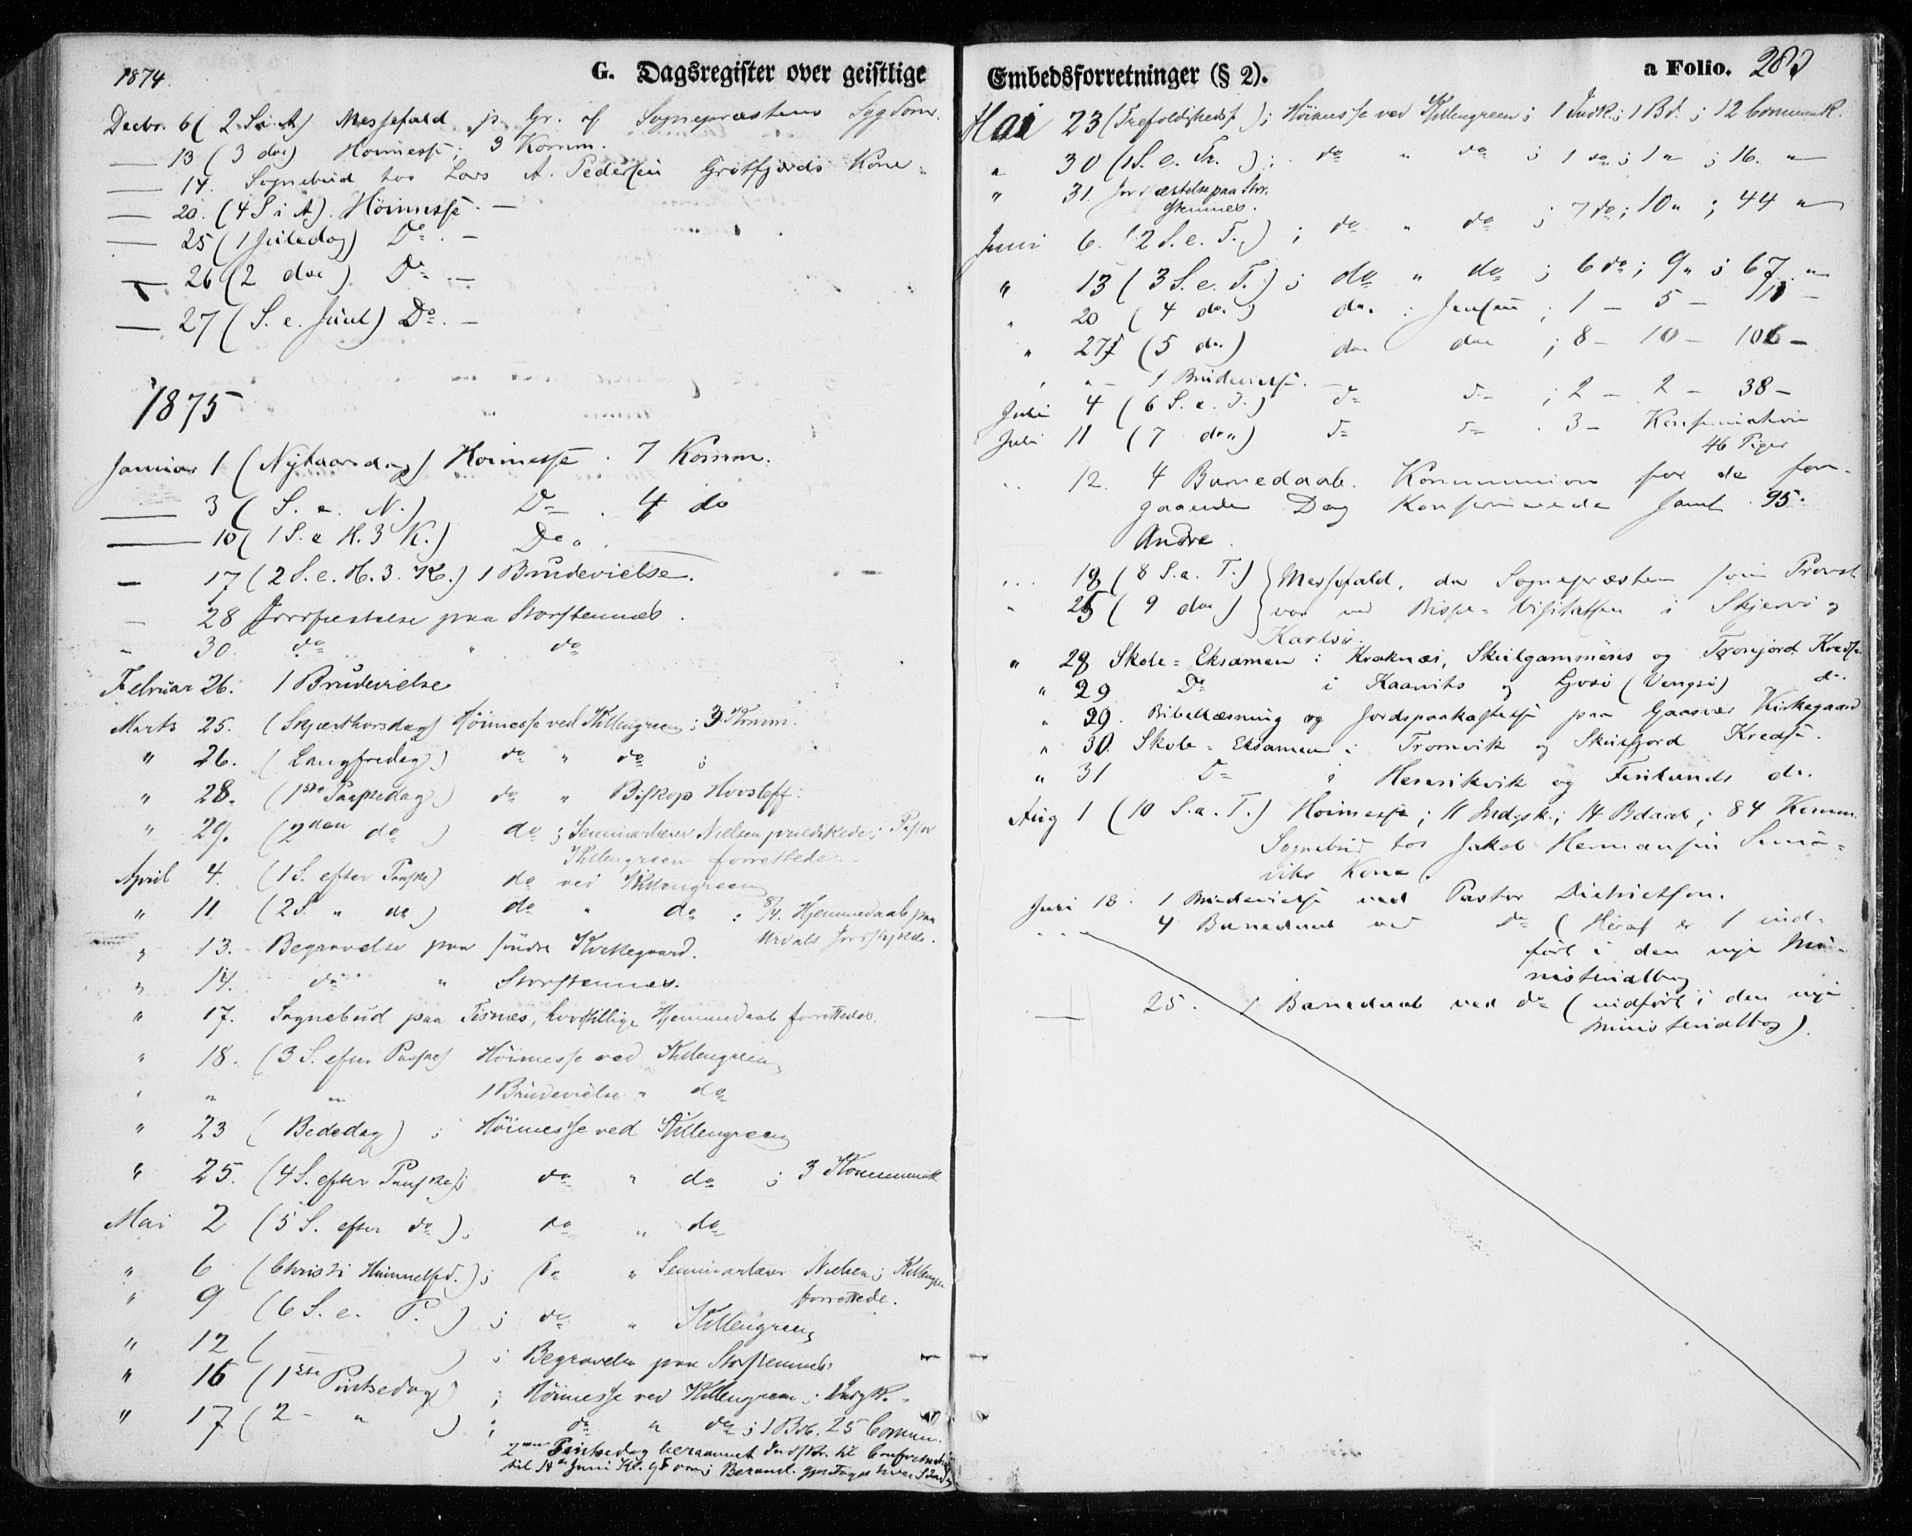 1874.
G. Dagsregister over geistlige
Decbr. 6 (2 S. i A) Messefald p. Gr. af Sognepræstens Sygdom.
— 13 (3 do) Høimesse; 3 Komm.
— 14. Sognebud hos Lars A. Pedersen Grøtfjords Kone.
— 20. (4 S i A). Høimesse. —
— 25 (1 Juledag) Do. —
— 26 (2 do) Do —
— 27 (S. e. Juul) Do. —
1875
Januar 1 (Nytaarsdag) Høimesse. 7 Komm.
— 3 (S. e. N.) Do . 4 do
— 10 (1 S. e H. 3 K.) Do .
— 17 (2 S. e. H. 3. K.) 1 Brudevielse.
— 28 Jordfæstelse paa Storstennes.
" 30. do " do
Februar 26. 1 Brudevielse
Marts 25. (Skjærthorsdag) Høimesse ved Killengreen; 3 Komm.
" 26. (Langfredag) do " do ;
" 28. (1ste Paaskedag) do " Biskop Hvosleff.
" 29. (2den do ) do ; Seminarlærer Nielsen prædikede; Pastor
Killengreen forrettede.
April 4. (1 S. efter Paaske) do ved Killengreen
" 11 (2 S. " do) do " do : 8/4. Hjemmedaab paa
" 13. Begravelse paa søndre Kirkegaard.
" 14. do " Storstennes.
" 17. Sognebud paa Tisnes, hvor tillige Hjemmedaab forrettedes.
" 18. (3 S. efter Paaske) Høimesse ved Killengreen
" " " 1 Brudevielse " do
" 23 (Bededag) ; Høimesse ved Killengreen
" 25. (4 S. efter Paaske); do " do ; 3 Kommunik
Mai 2 (5 S. efter do); do " do
" 6 (Christi Himmelfd.); do " Seminarlærer Nielsen; Killengreen
forrettede.
" 9 (6 S. e. P. ) ; do " Killengreen
" 12 ( ) ; Begravelse paa Storstennes.
" 16 (1ste Pintsedag) ; Høimesse ved Killengreen; Indgk.
" 17 (2 - " ) ; do " do ; 1 Brb. 25 Commun.
2den Pintsedag berammet Indskr. til Confirmation
til 14de Juni Kl.
Embedsforretninger (§ 2).
a Folio. 283
Mai 23 (Trefoldighedsf ); Høimesse ved Killengreen; 1 Indk.; 1 Bd. ; 12 Communik.
" 30 (1 S. e. Tr. ); do " do ; 1 do ; 1 " ; 16. "
" 31. Jordfæstelse paa Stor-
stennes.
Juni 6. (2 S. e. T.) ; do " do ; 7 do ; 10 " ; 44 "
" 13 (3 S. e. T.) ; do " do ; 6 do ; 9 " ; 67 "
" 20 (4 do.) do. : Jensen ; 1 — 5 — 111 —
" 27 (5 do) do do ; 8 — 10 — 106 —
" " — 1 Brudevielse. —
Juli 4 (6 S. e. T.) do do ; 2 — 2 — 38 —
Juli 11 (7 do) do do . 3 — Konfirmation
46 Piger
" 12. 4 Barnedaab. Kommunion for de fore-
gaaende Dag Konfirmerede samt 95.
Andre.
" 18 (8 S. e. T.) } Messefald, da Sognepræsten som Provst
" 25 (9 do) } var ved Bispe-Visitatsen i Skjervø og
Karlsø.
" 28 Skole-Eksamen i Kraknes, Skulgammens og Tronjord Kredse
" 29 Do i Kaaviks og (Vengsø) do.
" 29. Bibellæsning og Jordspaakastelse paa Gaasvær Kirkegaard
" 30. Skole-Eksamen i Tromvik og Skulsfjord Kredse.
" 31 Do i Henrikvik og Finlands do.
Aug 1 (10 S. e. T.) Høimesse; 11 Indgk.; 14 Bdaab; 84 Komm.
Sognebud hos Jakob Hermansen
viks Kone.
Juni 18. 1 Brudevielse ved Pastor Dietrichson.
" " 4 Barnedaab ved do (Heraf er 1 ind-
ført i den nye Mi-
nisterialbog
— 25. 1 Barnedaab ved do (indført i den nye
Ministerialbog).